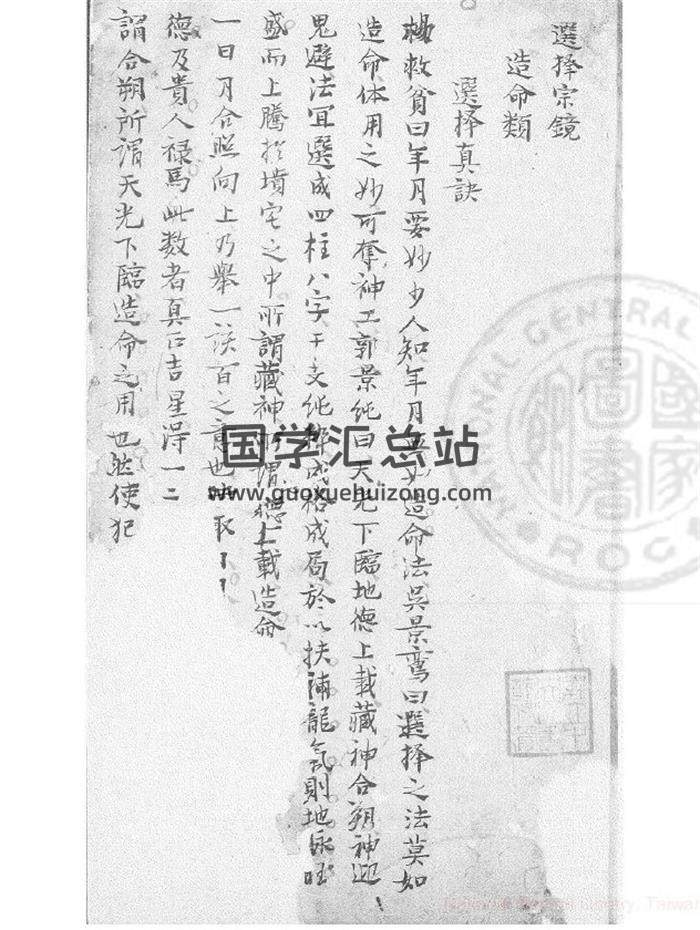 選择宗鏡
造命類
選择真訣
楊救貧曰年月要妙少人知年月要妙造命法吳景鸾曰選择之法莫如
造命体用之妙可奪神工郭景純曰天光下臨地德上載藏神合朔神迎
鬼避法宜選成四柱八字干支纯粹成格成局於以扶補龍氣則地脉旺
盛而上騰於墳宅之中所謂藏神所謂德上載造命
一日月合照向上乃舉一该百之意也 取
德及貴人禄馬此数者真正吉星淂一二
謂合朔所謂天光下臨造命之用也然使犯
国学汇总站
www.guoxuehuizong.com
圖書
NATIONAL CENTRAL
R.O.C.
Library, Taiwan